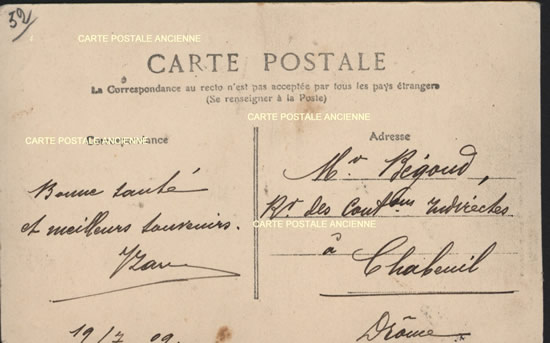 52
CARTE POSTALE ANCIENNE
CARTE POSTALE
La Correspondance au recto n'est pas acceptée par tous les pays étrangers
(Se renseigner à la Poste)
CARTE POSTALE ANCIENNE
CARTE POSTALE ANCIENNE
Correspondance
Bonne santé
et meilleurs souvenirs.
19/7 09
Adresse
Mr Bégoud,
Rr des Contons Indirectes
CARTE POSTALE ANCIENNE
à Chabeuil
Drôme